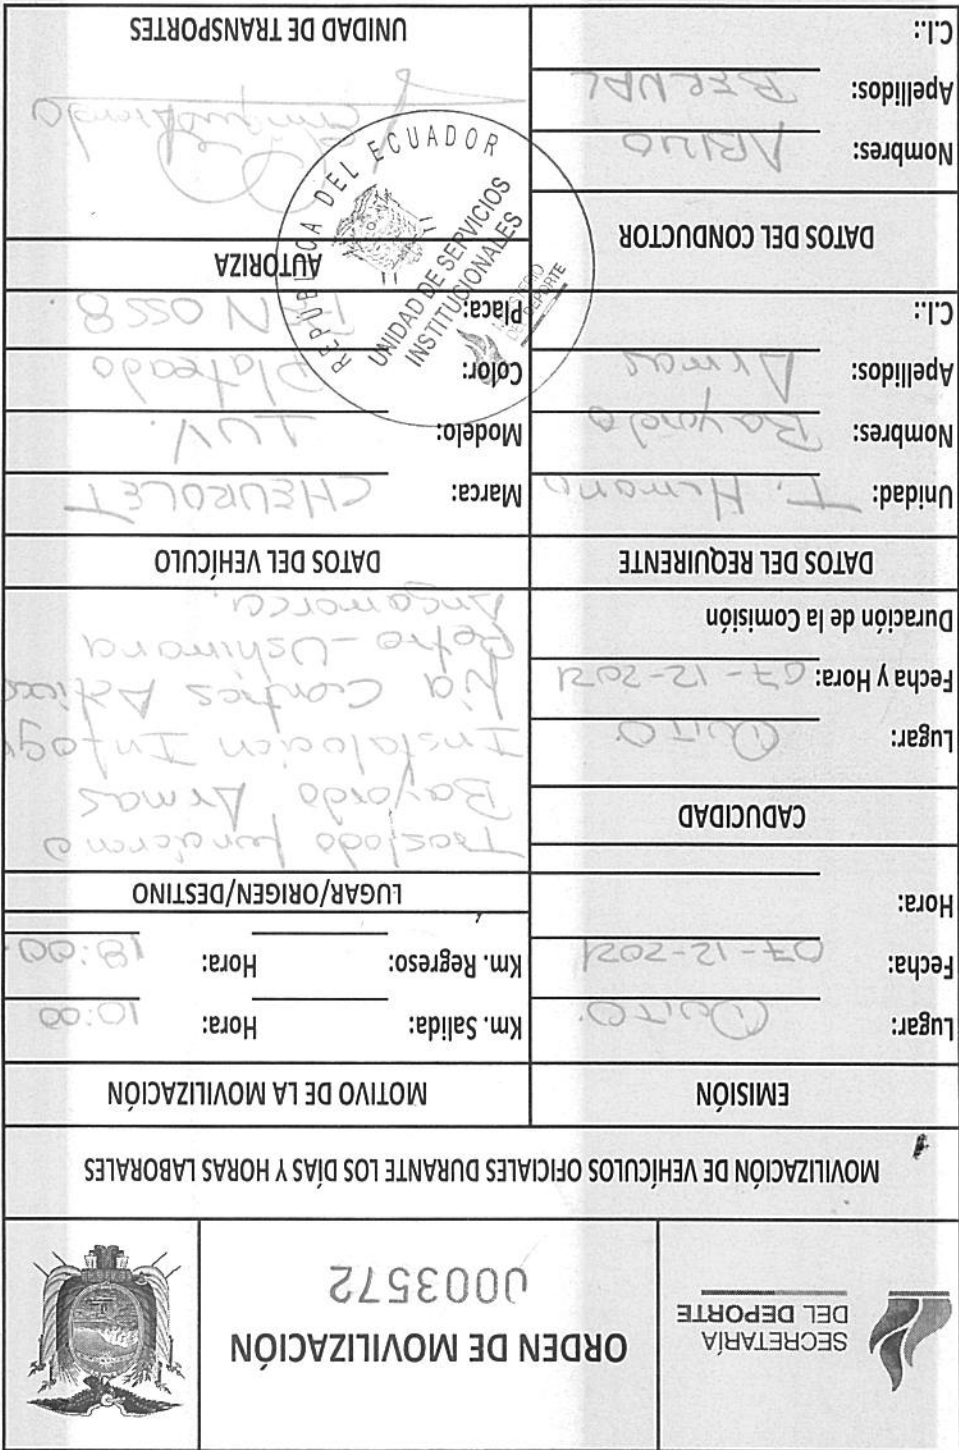 SECRETARÍA
DEL DEPORTE
ORDEN DE MOVILIZACIÓN
0003572
MOVILIZACIÓN DE VEHÍCULOS OFICIALES DURANTE LOS DÍAS Y HORAS LABORALES
EMISIÓN
Lugar: QUITO.
Fecha: 07-12-2021
Hora:
CADUCIDAD
Lugar: QUITO.
Fecha y Hora: 07-12-2021
Duración de la Comisión
DATOS DEL REQUIRENTE
Unidad: T. Humano
Nombres: Bayardo
Apellidos: Armas
C.I.:
DATOS DEL CONDUCTOR
Nombres:
Apellidos: BERNAL
C.I.:
MOTIVO DE LA MOVILIZACIÓN
Km. Salida: Hora: 10:00
Km. Regreso: Hora: 18:00
LUGAR/ORIGEN/DESTINO
Traslado funcionario
Bayardo Armas
Instalacion Infogr
Activa
Ushimana
Angamarca.
DATOS DEL VEHÍCULO
Marca: CHEVROLET
Modelo: LUV.
Color: Plateado
Placa: 0228
AUTORIZA
REPÚBLICA DEL ECUADOR
UNIDAD DE SERVICIOS
INSTITUCIONALES
MINISTERIO
DEL DEPORTE
UNIDAD DE TRANSPORTES